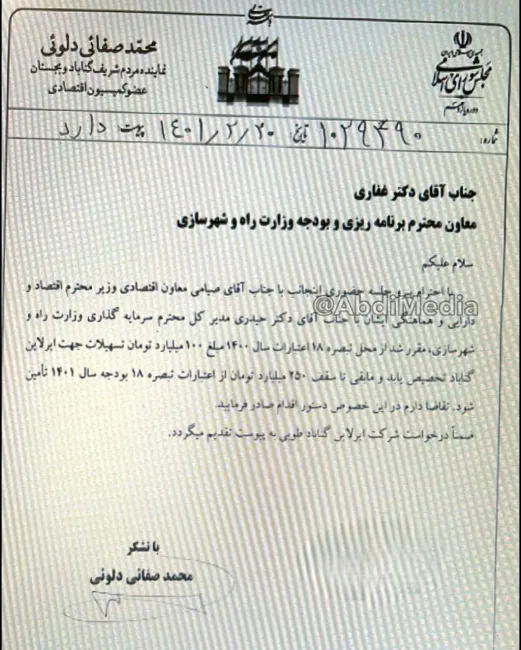 محمّد صفائی دلوئی
نماینده مردم شریف گناباد و بجستان
عضو کمیسیون اقتصادی
جمهوری اسلامی ایران
مجلس شورای اسلامی
دوره یازدهم
شماره: ۱۰۲۹۴۹۰ تاریخ ۱۴۰۱/۲/۲۰ پیوست دارد
جناب آقای دکتر غفاری
معاون محترم برنامه ریزی و بودجه وزارت راه و شهرسازی
سلام علیکم
با احترام پیرو جلسه حضوری اینجانب با جناب آقای صیامی معاون اقتصادی وزیر محترم اقتصاد و
@AbdiMedia
دارایی و هماهنگی ایشان با جناب آقای دکتر حیدری مدیر کل محترم سرمایه گذاری وزارت راه و
شهرسازی، مقرر شد از محل تبصره ۱۸ اعتبارات سال ۱۴۰۰ مبلغ ۱۰۰ میلیارد تومان تسهیلات جهت ایرلاین
گناباد تخصیص یابد و مابقی تا سقف ۲۵۰ میلیارد تومان از اعتبارات تبصره ۱۸ بودجه سال ۱۴۰۱ تأمین
شود. تقاضا دارم در این خصوص دستور اقدام صادر فرمایید.
ضمناً درخواست شرکت ایرلاین گناباد طوبی به پیوست تقدیم میگردد.
با تشکر
محمد صفائی دلوئی